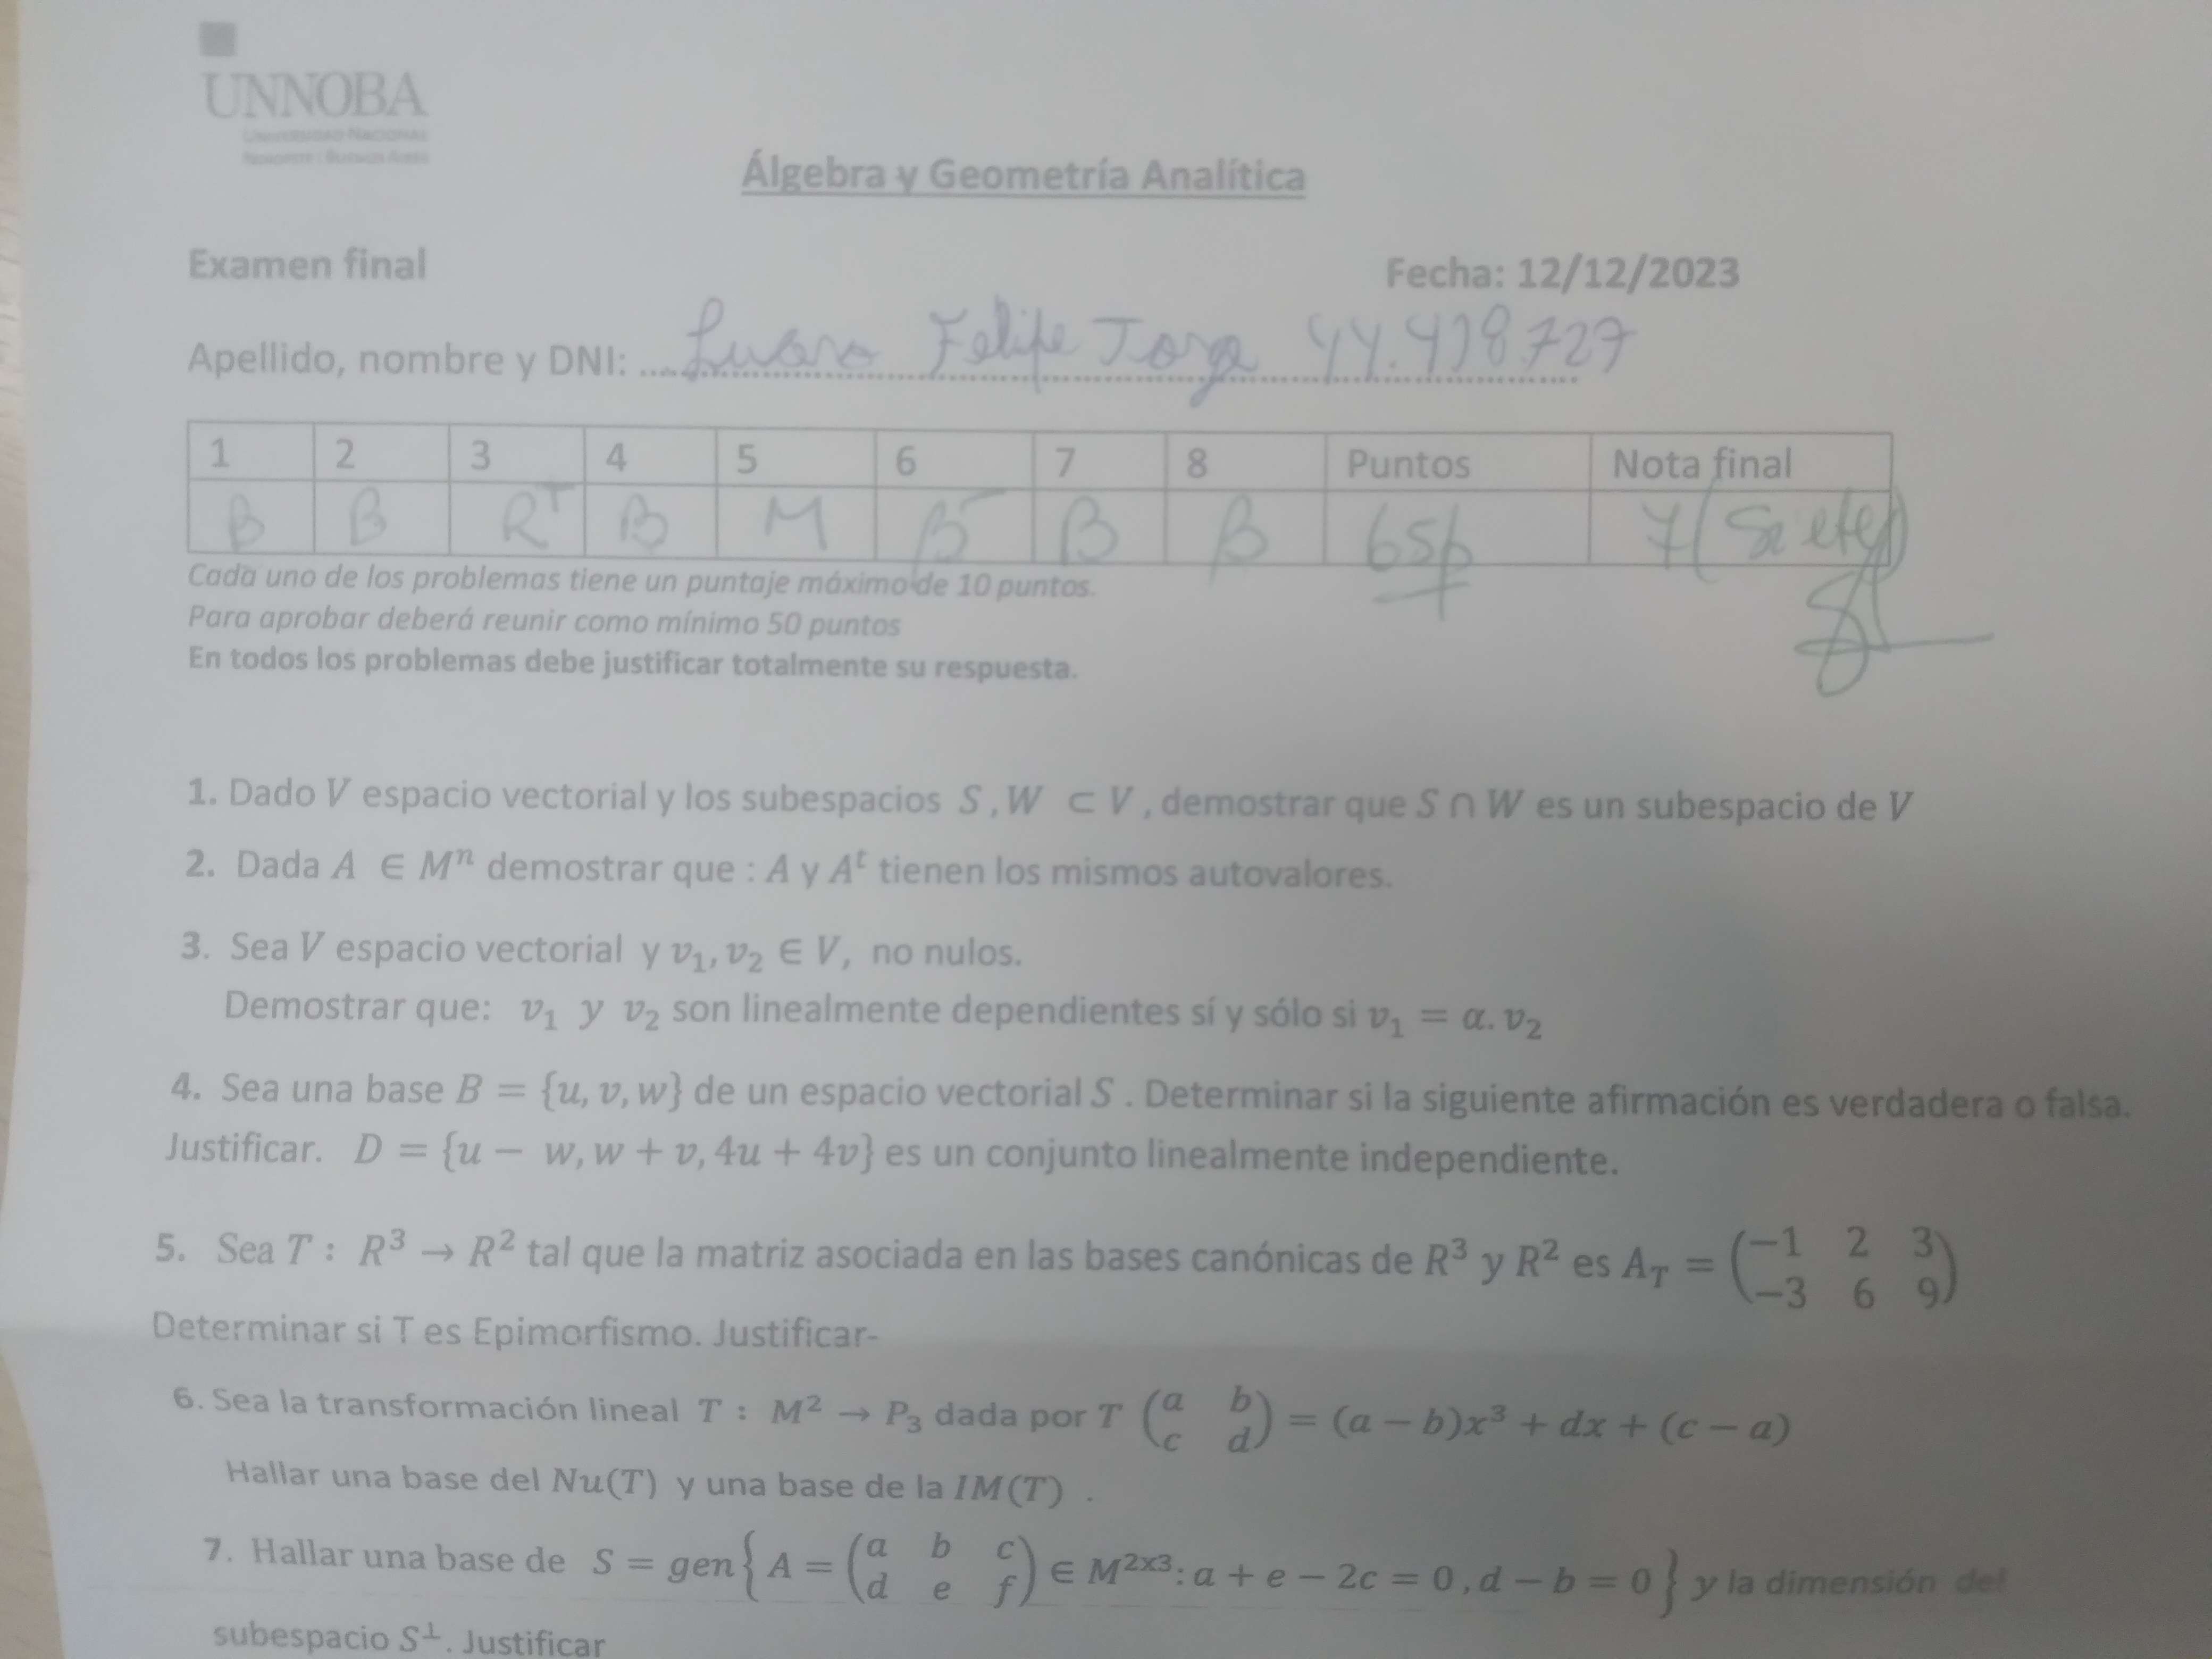 UNNOBA
UNIVERSIDAD NACIONAL
NOROESTE | BUENOS AIRES
Álgebra y Geometría Analítica
Examen final
Fecha: 12/12/2023
Apellido, nombre y DNI: Felipe Jorge 44.418727
1 2 3 4 5 6 7 8 Puntos Nota final
B B R+ B M B- B B 65p 7 (Siete)
Cada uno de los problemas tiene un puntaje máximo de 10 puntos.
Para aprobar deberá reunir como mínimo 50 puntos
En todos los problemas debe justificar totalmente su respuesta.
1. Dado V espacio vectorial y los subespacios S , W ⊂ V , demostrar que S ∩ W es un subespacio de V
2. Dada A ∈ Mⁿ demostrar que : A y Aᵗ tienen los mismos autovalores.
3. Sea V espacio vectorial y v₁, v₂ ∈ V, no nulos.
Demostrar que: v₁ y v₂ son linealmente dependientes sí y sólo si v₁ = α. v₂
4. Sea una base B = {u, v, w} de un espacio vectorial S . Determinar si la siguiente afirmación es verdadera o falsa.
Justificar. D = {u − w, w + v, 4u + 4v} es un conjunto linealmente independiente.
5. Sea T : R³ → R² tal que la matriz asociada en las bases canónicas de R³ y R² es A_T = (−1 2 3
−3 6 9)
Determinar si T es Epimorfismo. Justificar-
6. Sea la transformación lineal T : M² → P₃ dada por T (a b
c d) = (a − b)x³ + dx + (c − a)
Hallar una base del Nu(T) y una base de la IM(T) .
7. Hallar una base de S = gen { A = (a b c
d e f) ∈ M²ˣ³: a + e − 2c = 0 , d − b = 0 } y la dimensión del
subespacio S⊥. Justificar